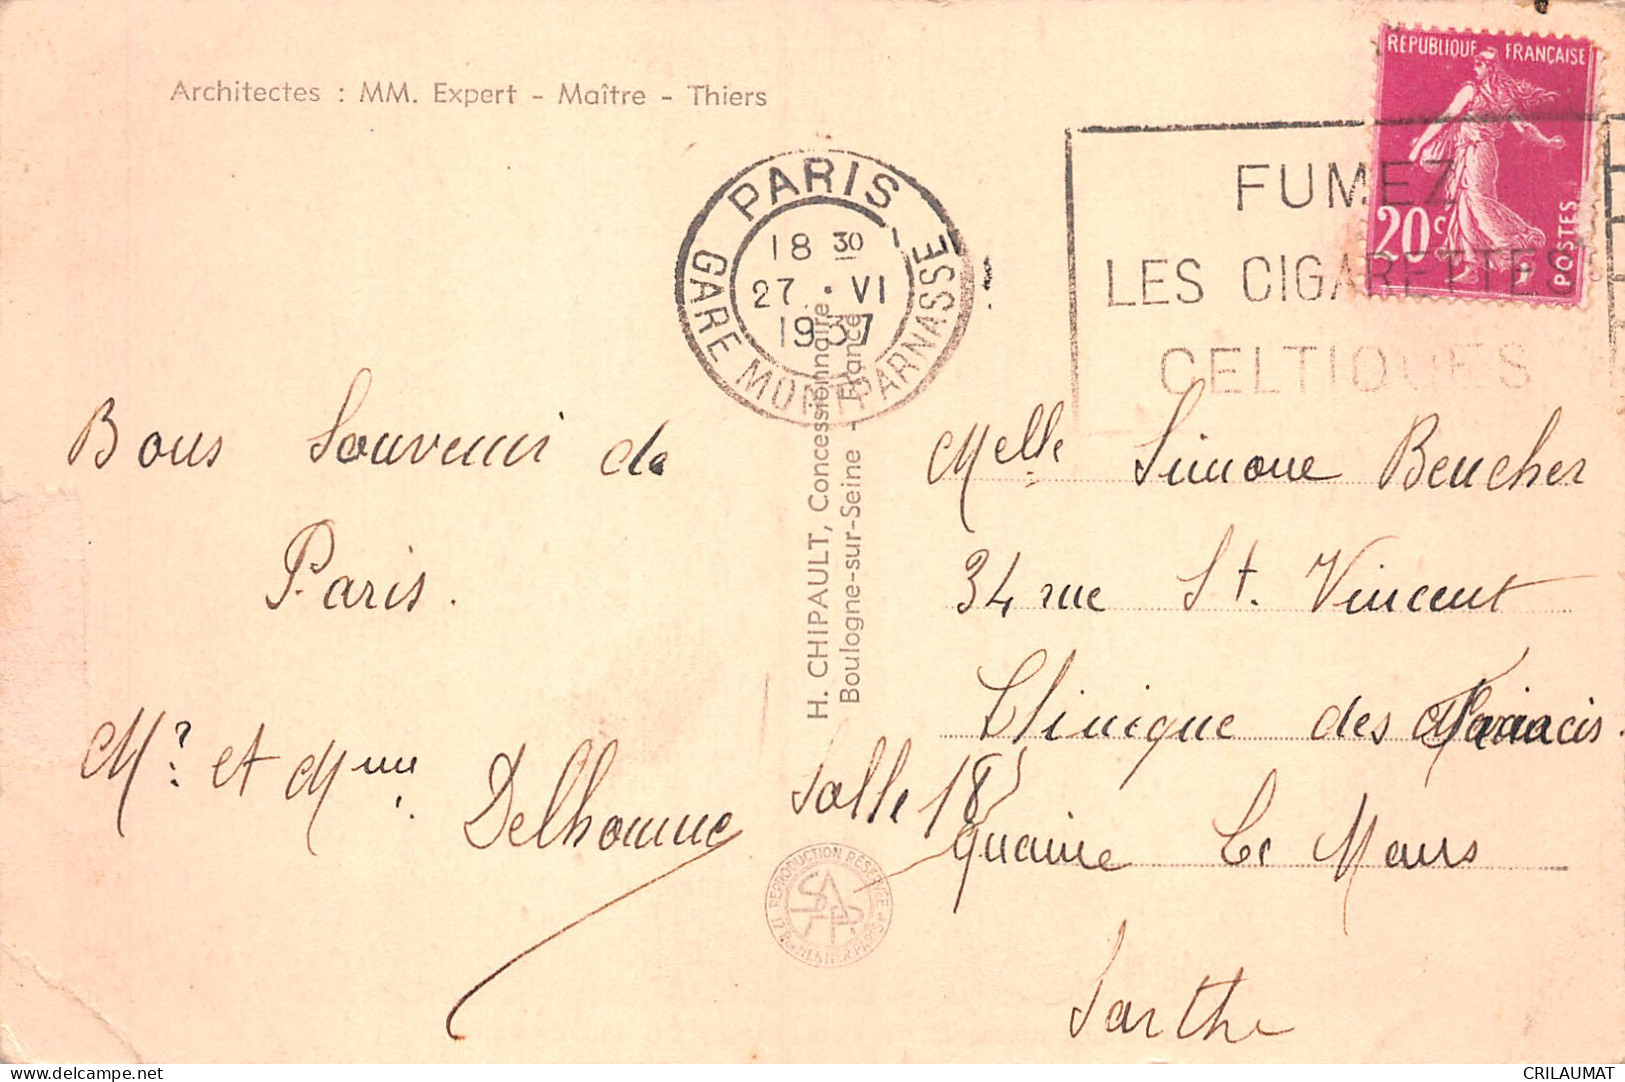 Architectes : MM. Expert - Maître - Thiers
REPUBLIQUE FRANÇAISE
20c
POSTES
PARIS
GARE MONTPARNASSE
18 30
27 • VI
1937
FUMEZ
LES CIGARETTES
CELTIQUES
H. CHIPAULT, Concessionnaire
Boulogne-sur-Seine - France
Bons Souvenir de
Paris.
Mr et Mme
Delhomme
Melle Simone Beucher
34 rue St. Vincent
Clinique des
Salle 18
Le Mans
Sarthe
REPRODUCTION RÉSERVÉE
delcampe.net
CRILAUMAT